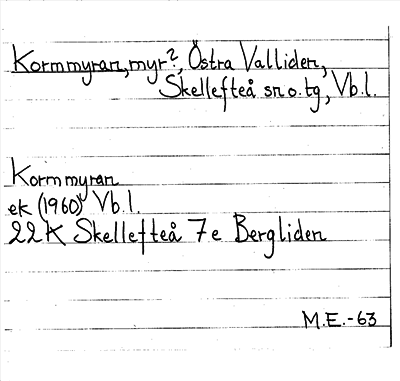 Kormmyran, myr?, Östra Valliden,
Skellefteå sn o. tg, Vb.l.
Kormmyran
ek (1960) Vb.l.
22K Skellefteå 7e Bergliden
M.E.-63